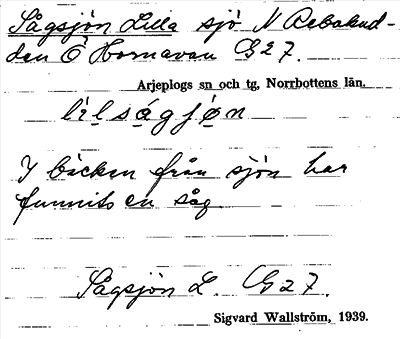 Sågsjön Lilla sjö N Rebakud-
den Ö Hornavan G 27.
Arjeplogs sn och tg, Norrbottens län.
lìlságȷø̀n
I bäcken från sjön har
funnits en såg
Sågsjön L. G 27.
Sigvard Wallström, 1939.